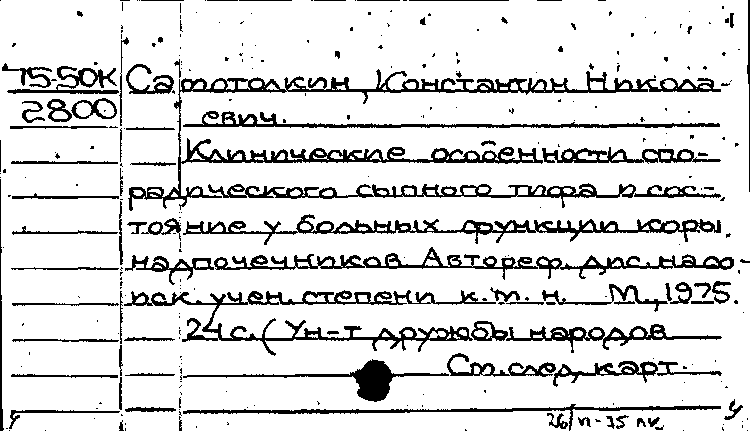 75-50К Самотолкин, Константин Никола-
2800 евич.
Клинические особенности спо-
радического сыпного тифа и сос-
тояние у больных функции коры
надпочечников. Автореф. дис. на со-
иск. учен. степени к.м.н. М., 1975.
24 с. (Ун-т дружбы народов
См. след. карт.